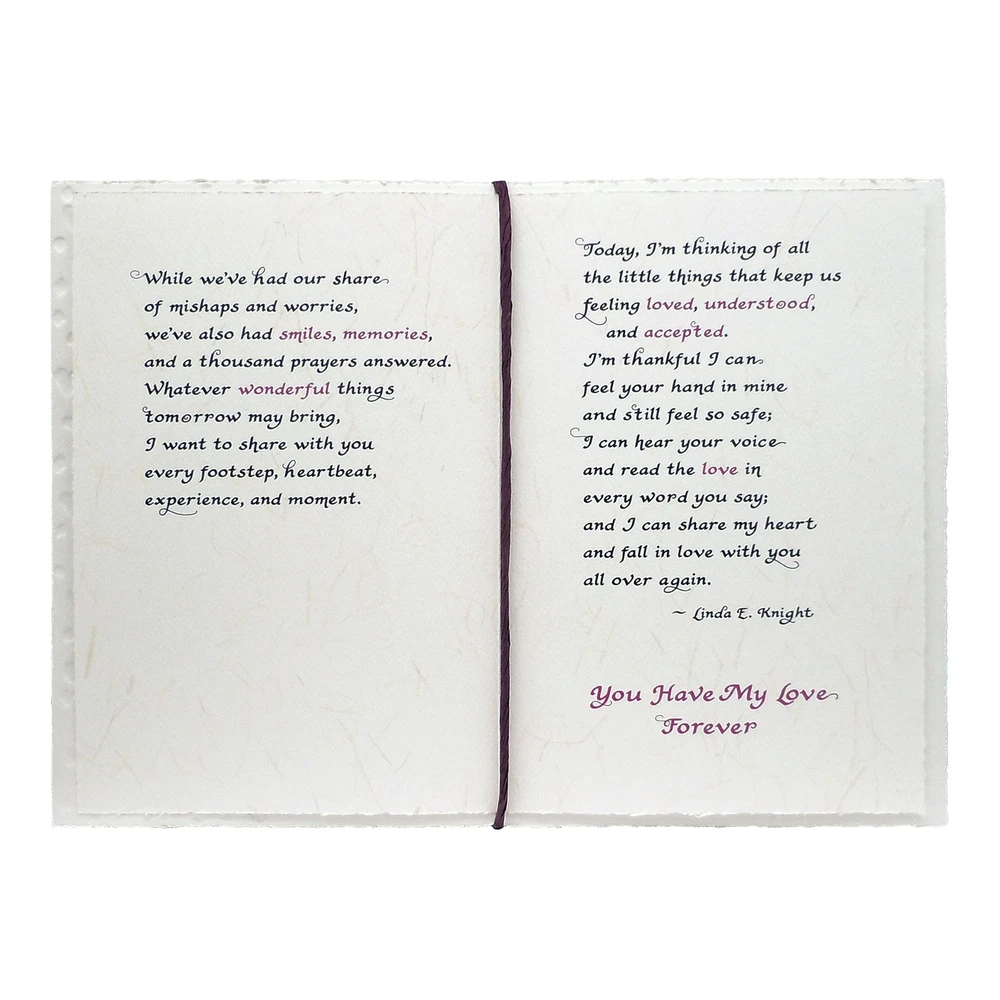 While we've had our share
of mishaps and worries,
we've also had smiles, memories,
and a thousand prayers answered.
Whatever wonderful things
tomorrow may bring,
I want to share with you
every footstep, heartbeat,
experience, and moment.
Today, I'm thinking of all
the little things that keep us
feeling loved, understood,
and accepted.
I'm thankful I can
feel your hand in mine
and still feel so safe;
I can hear your voice
and read the love in
every word you say;
and I can share my heart
and fall in love with you
all over again.
~ Linda E. Knight
You Have My Love
Forever